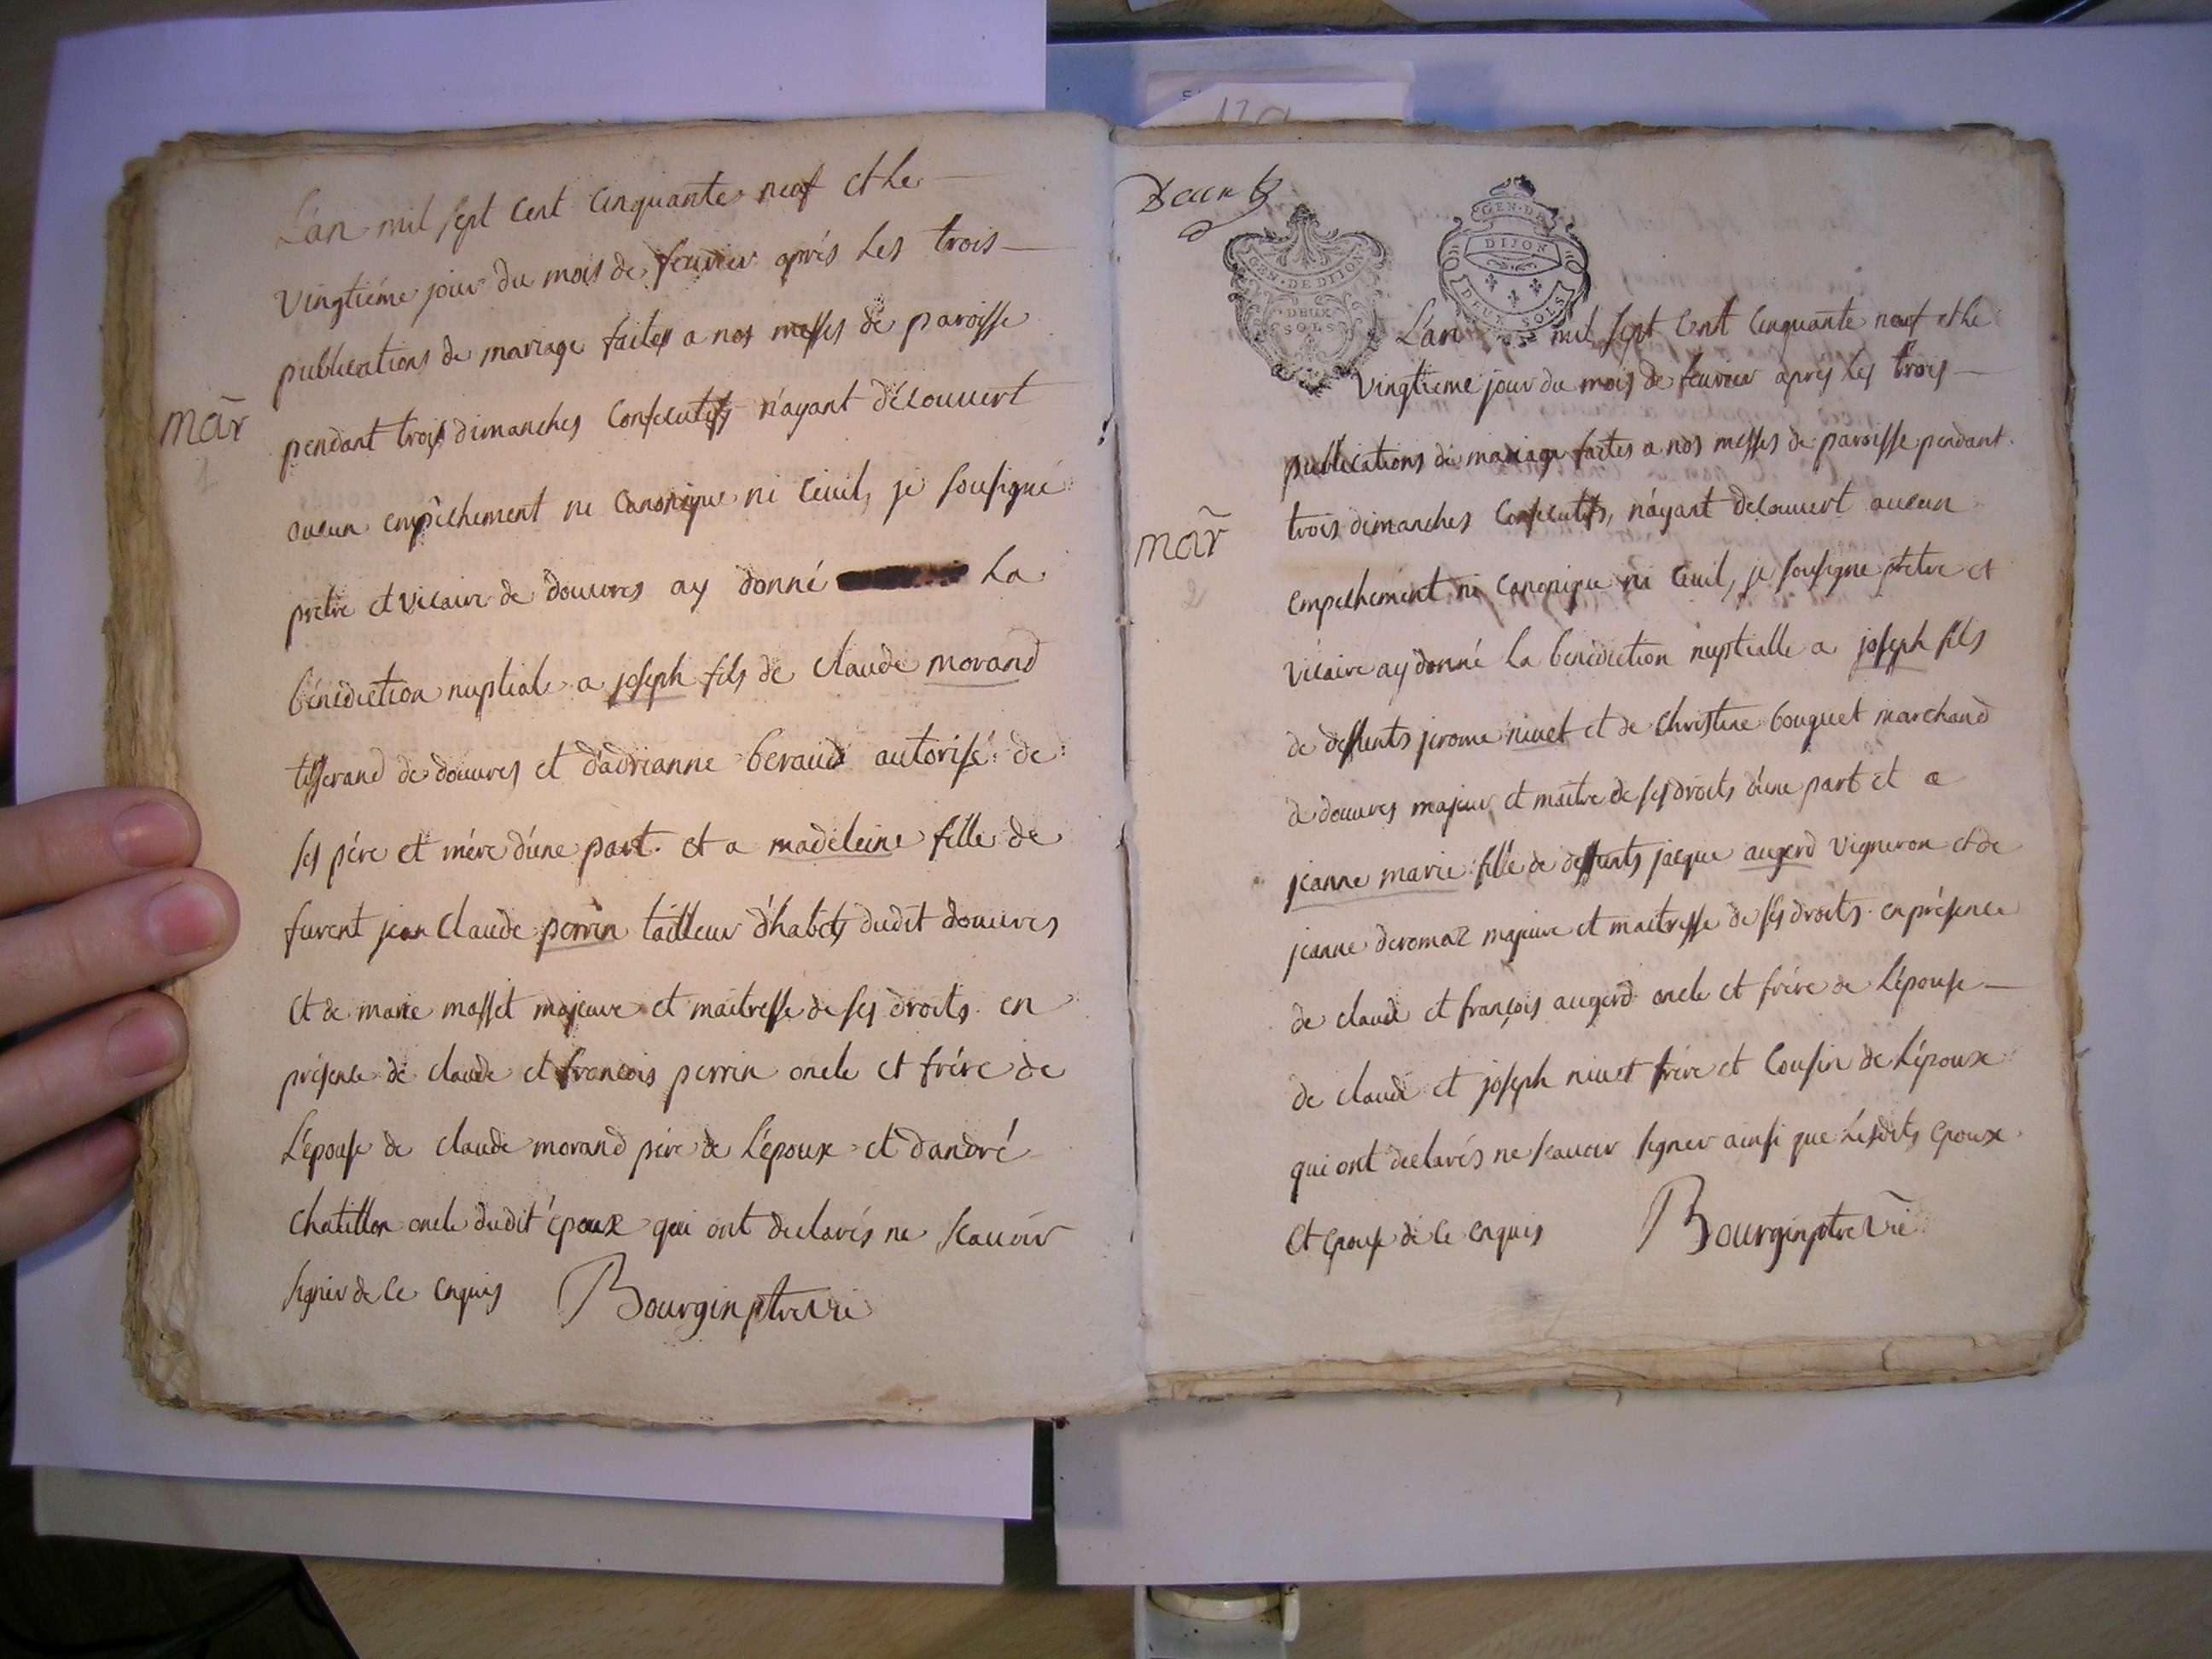 L'an mil sept cent cinquante neuf et le
vingtiéme jour du mois de feuvrier aprés les trois
publications de mariage faites a nos messes de paroisse
mar̃
1
pendant trois dimanches consecutifs n'ayant découvert
aucun empêchement ni canonique ni ceuil, je sousigné
pretre et vicaire de douvres ay donné la
bénédiction nuptiale a joseph fils de claude morand
tisserand de douvres et d'adrianne beraud autorisé de
ses pére et mére d'une part. et a madeleine fille de
furent jean claude perrin tailleur d'habits dudit douvres
et de marie masset majeure et maitresse de ses droits. en
présence de claude et francois perrin oncle et frére de
l'épouse de claude morand pére de l'époux et d'andré
chatillon oncle dudit époux qui ont declarés ne scauoir
signer de ce enquis Bourgin ptre vie
GEN. DE DIJON
DEUX
SOLS
GEN. DE
DIJON
DEUX SOLS
L'an mil sept cent cinquante neuf et le
vingtieme jour du mois de feuvrier apres les trois
publications de mariage faites a nos messes de paroisse pendant
mar̃
2
trois dimanches consecutifs, n'ayant decouvert aucun
empechement ni canonique ni ceuil, je sousigne ptetre et
vicaire ay donné la benediction nuptialle a joseph fils
de deffunts jerome nivet et de christine bouquet marchand
de douvres majeur et maitre de ses droits d'une part et a
jeanne marie fille de deffunts jacque augerd vigneron et de
jeanne deromaz majeure et maitresse de ses droits. en présence
de claude et françois augerd oncle et frére de l'épouse
de claude et joseph nivet frére et cousin de l'époux
qui ont declarés ne scauoir signer ainsi que lesdits epoux
et epouse de ce enquis Bourgin ptre vie